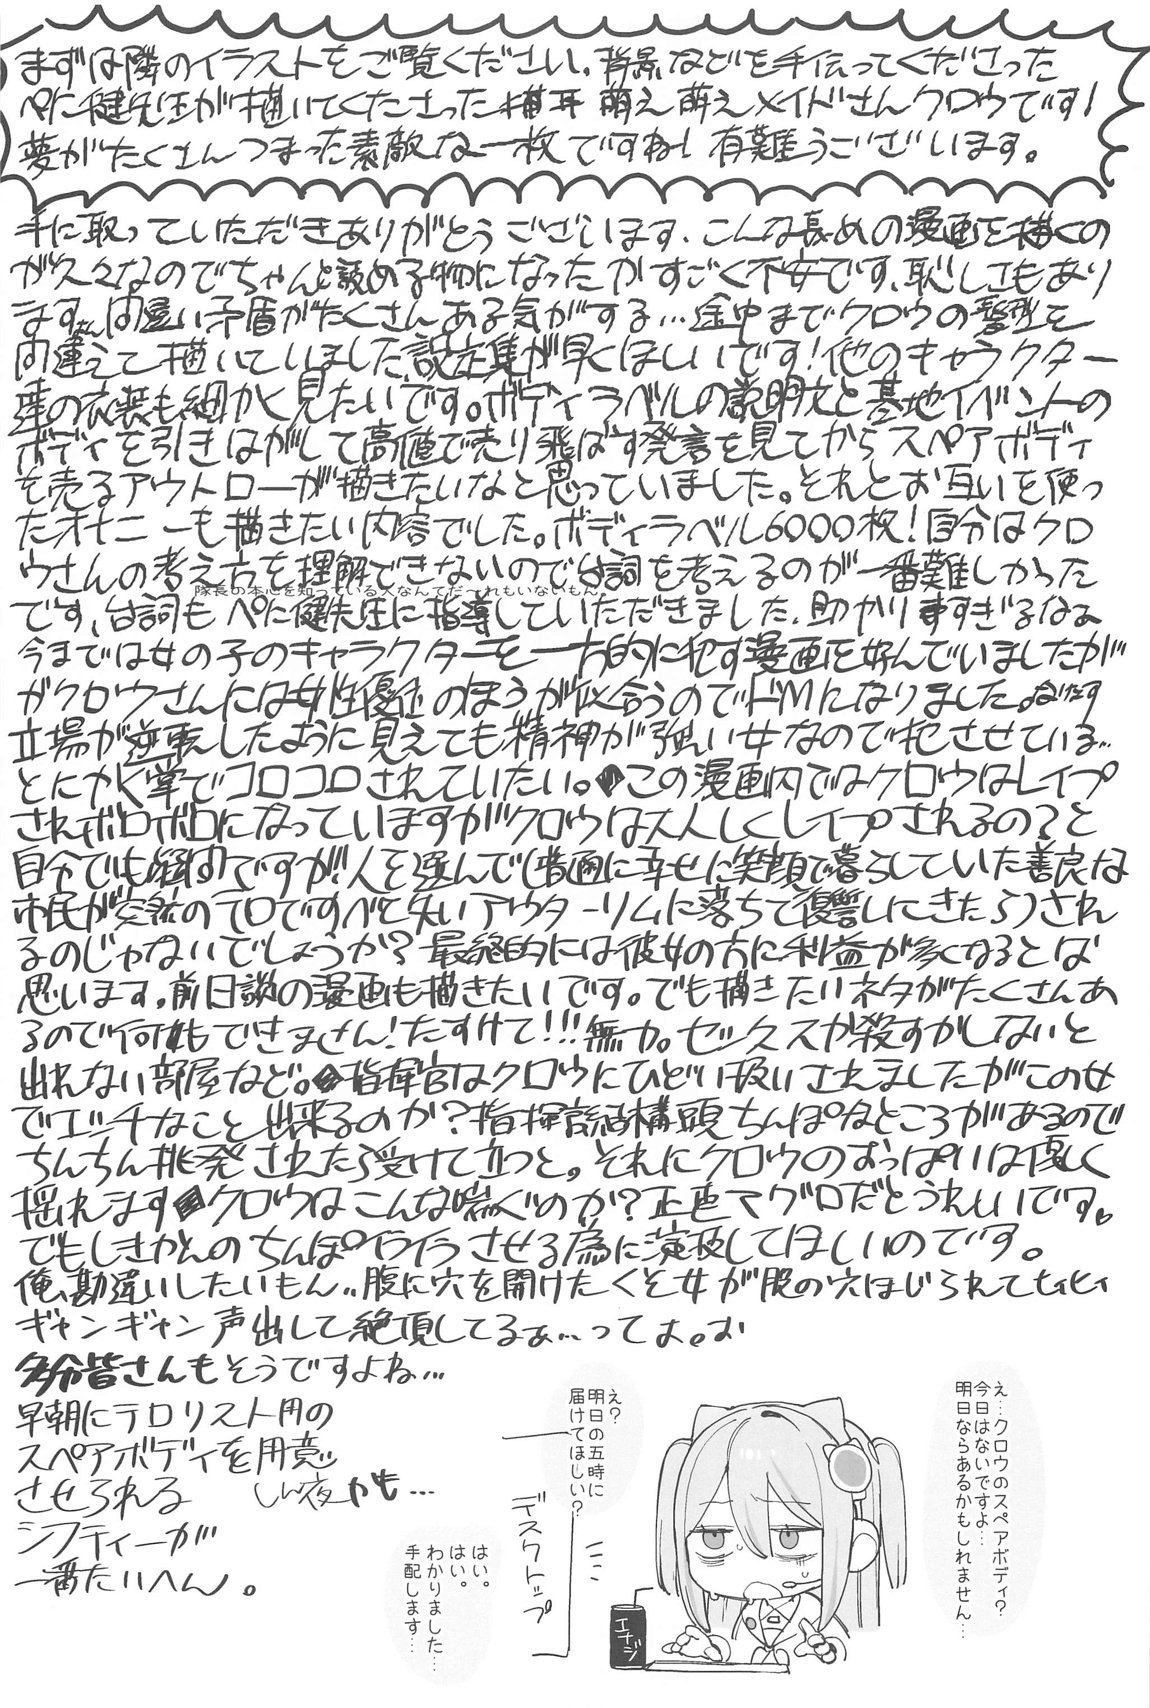 まずは隣のイラストをご覧ください。背景などを手伝ってくださった
ぺに健先生が描いてくださった猫耳 萌え萌えメイドさんクロウです!
夢がたくさんつまった素敵な一枚ですね! 有難うございます。
手に取っていただきありがとうございます、こんな長めの漫画を描くの
が久々なのでちゃんと読める物になったかすごく不安です、恥しくもあり
ます、間違い矛盾がたくさんある気がする…途中までクロウの髪型を
間違えて描いていました、設定集が早くほしいです!他のキャラクター
達の衣装も細かく見たいです。ボディラベルの説明文と基地イベントの
ボディを引きはがして高値で売り飛ばす発言を見てからスペアボディ
を売るアウトローが描きたいなと思っていました。それとお互いを使っ
たオナニーも描きたい内容でした。ボディラベル6000枚!自分はクロ
ウさんの考え方を理解できないので台詞を考えるのが一番難しかった
隊長の本心を知っている人なんてだ〜れもいないもん
です、台詞もぺに健先生に指導していただきました、助かりますすぎるなぁ
今までは女の子のキャラクターを一方的に犯す漫画を好んでいましたが
がクロウさんには女性優位のほうが似合うのでドMになりました。
立場が逆転したように見えても精神が強い女なので犯させている…
とにかく掌でコロコロされていたい。この漫画内ではクロウはレイプ
されボロボロになっていますがクロウは大人しくレイプされるの?と
自分でも ですが!人を選んで(普通に幸せに笑顔で暮らしていた善良な
市民が突然のテロですべて失いアウターリムに落ちて復讐しにきたら)され
るのじゃないでしょうか?最終的には彼女の方に利益が多くなるとは
思います。前日談の漫画も描きたいです。でも描きたいネタがたくさんあ
るので何もできません!たすけて!!!無力。セックスか殺すかしないと
出れない部屋など。指揮官はクロウにひどい扱いされましたがこの女
でエッチなこと出来るのか?指揮官結構頭ちんぽなところがあるので
ちんちん挑発されたら受けて立つと。それにクロウのおっぱいは優しく
揺れます クロウはこんな喘ぐのか?正直マグロだとうれしいです。
でもしきかんのちんぽイライラさせる為に演技してほしいのです。
俺、勘違いしたいもん‥腹に穴を開けたくそ女が股の穴ほじられてヒィヒィ
ギャンギャン声出して絶頂してるぁ…ってよ。お
多分皆さんもそうですよね…
早朝にテロリスト用の
スペアボディを用意
させられる
しん夜かも…
シフティーが
一番たいへん。
え…クロウのスペアボディ?
今日はないですよ…
明日ならあるかもしれません…
え?
明日の五時に
届けてほしい?
はい。
はい。
わかりました…
手配します…
デスクトップ
エナジ